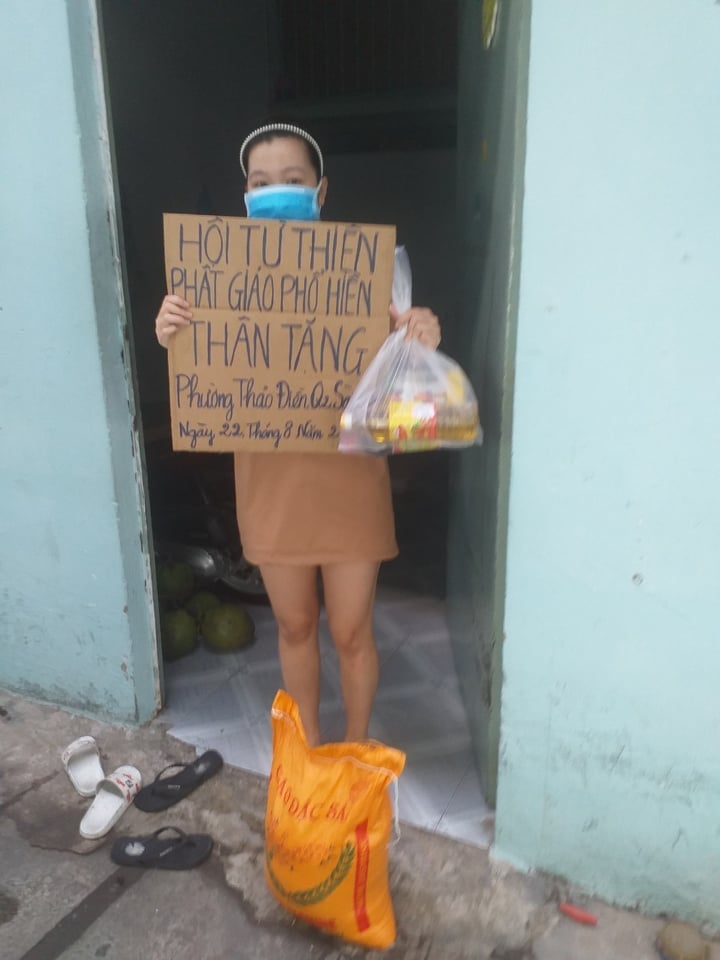 HỘI TỪ THIỆN
PHẬT GIÁO PHỐ HIẾN
THÂN TẶNG
Phường Thảo Điền Q2
Ngày 22 Tháng 8 Năm